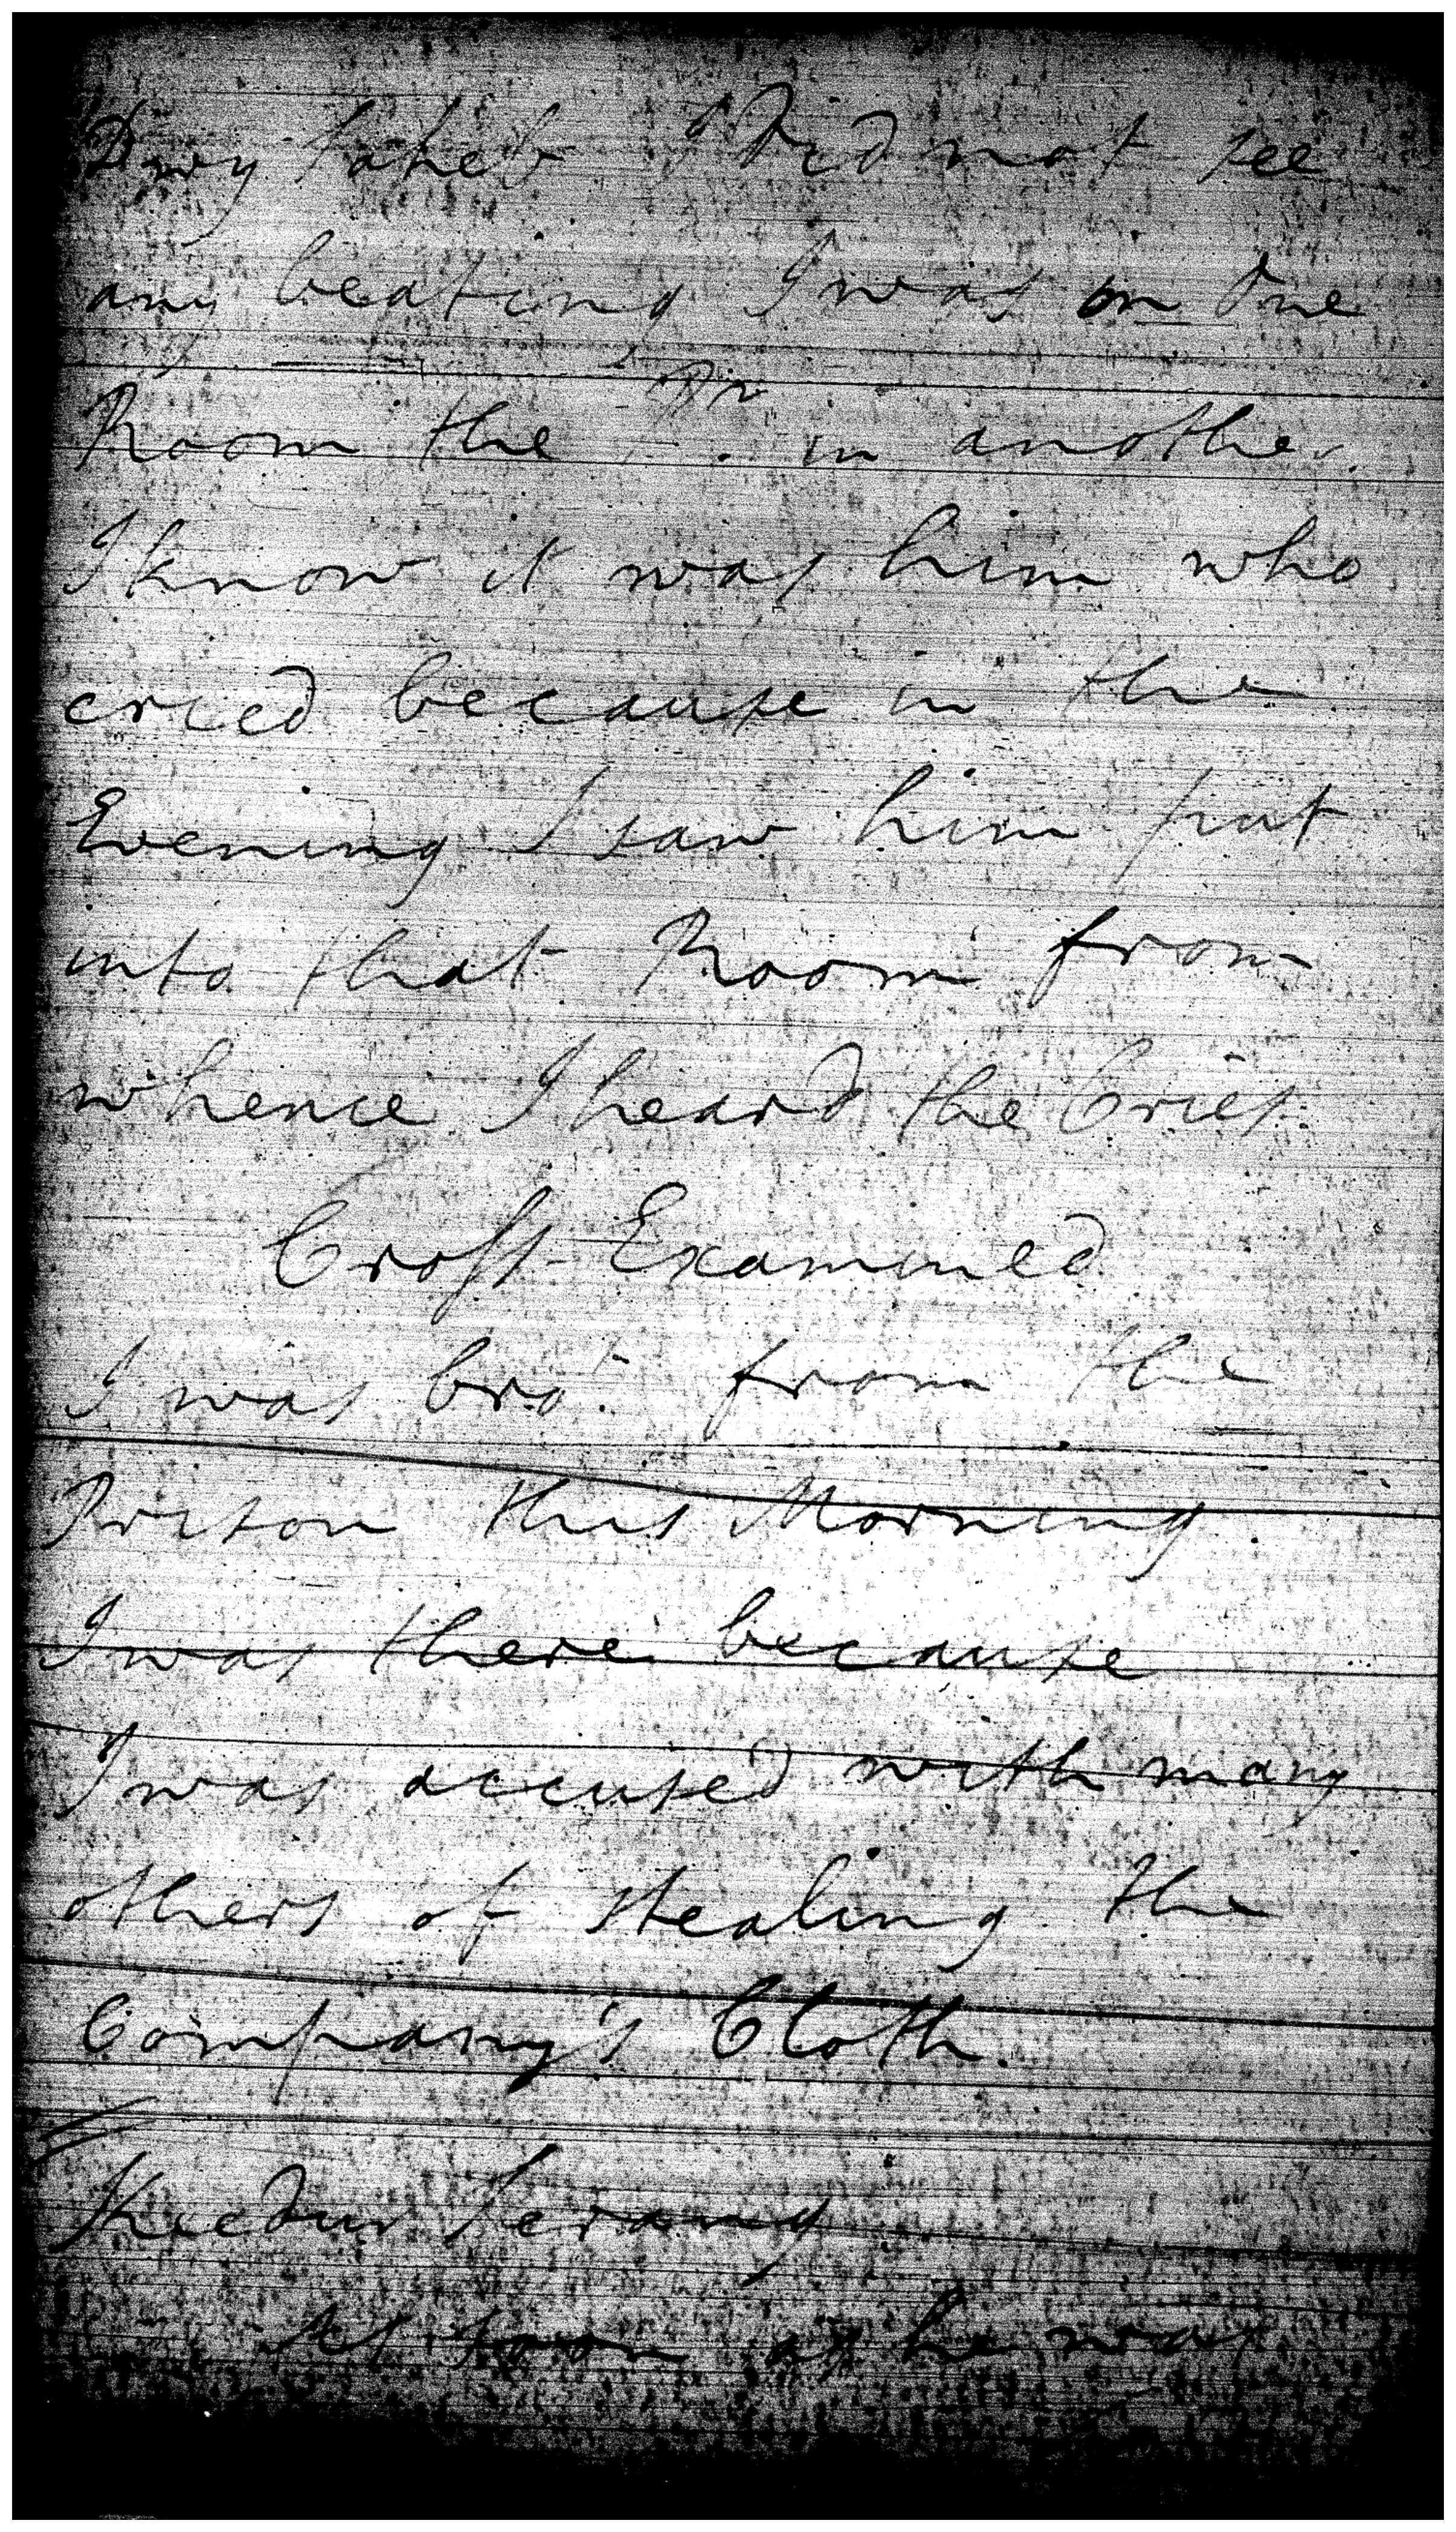 Saheb I Did not see
any beating I was in One
Room the Pr in another.
I know it was him who
cried because in the
Evening I saw him put
into that Room from
whence I heard the Cries.
Cross Examined
I was bro.t from the
Prison this Morning.
I was there because
I was accused with many
others of stealing the
Company's Cloth.
Serang
As soon as he was